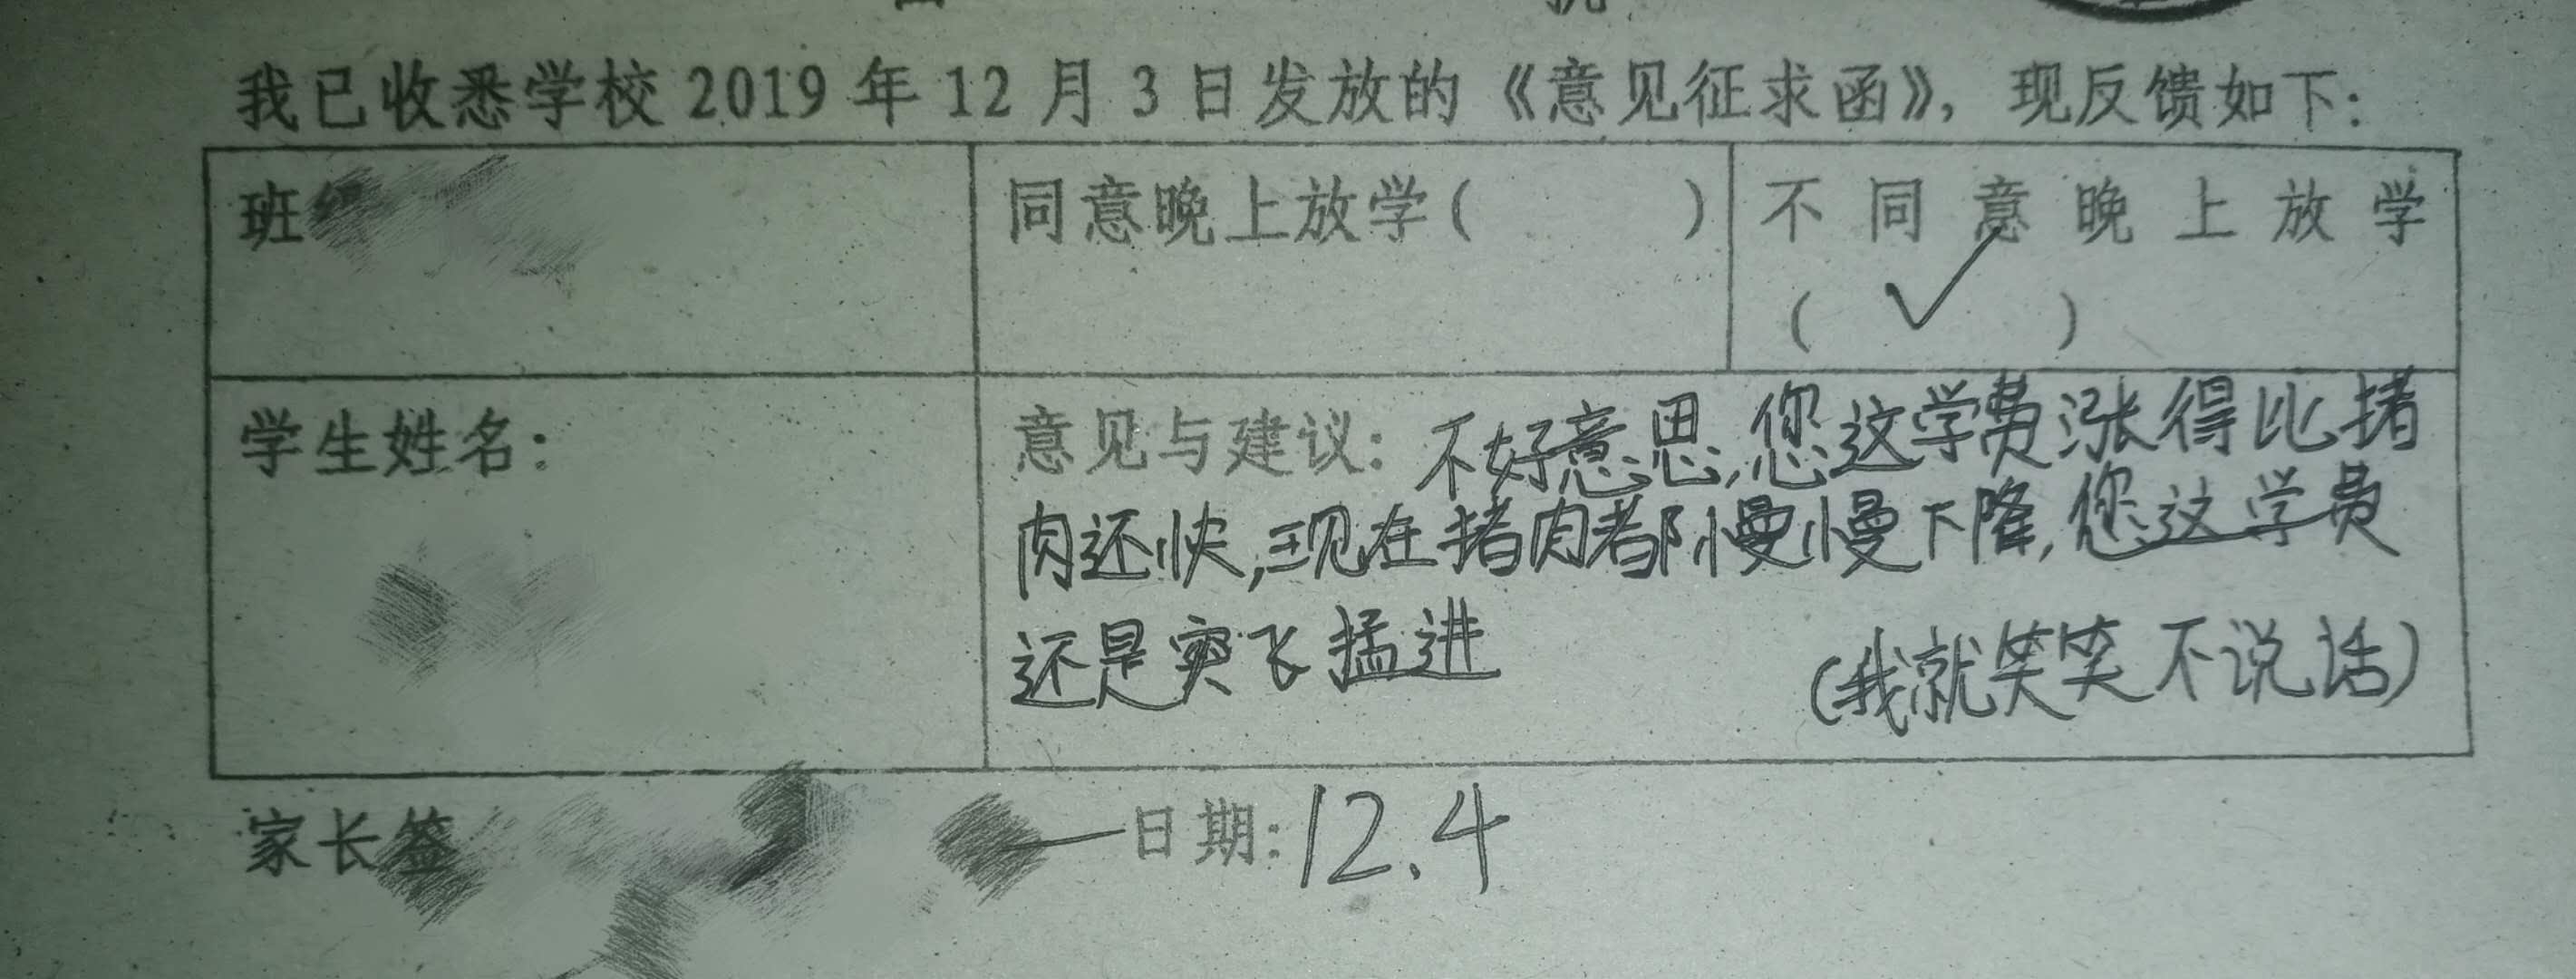 我已收悉学校 2019 年 12 月 3 日发放的《意见征求函》，现反馈如下：
班
同意晚上放学（ ）
不同意晚上放学
（ ✓ ）
学生姓名：
意见与建议：不好意思，您这学费涨得比猪
肉还快，现在猪肉都慢慢下降，您这学费
还是突飞猛进
（我就笑笑不说话）
家长签
日期：12.4